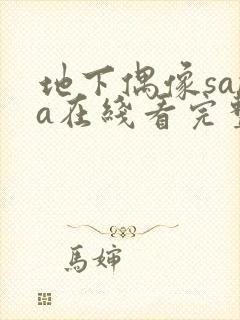 地下偶像sa
a在线看完
馬婶